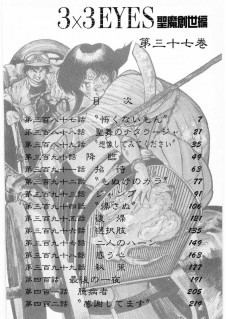 3×3EYES 聖魔創世編
第三十七巻
目次
第三百八十七話 “怖くないもん” 7
第三百八十八話 聖舞のナタラージャ 21
第三百八十九話 “想像してみてください” 35
第三百九十話 降臨 49
第三百九十一話 招待 63
第三百九十二話 “もぬけのカラ” 77
第三百九十三話 91
第三百九十四話 “帰さぬ” 106
第三百九十五話 復帰 121
第三百九十六話 選択肢 135
第三百九十七話 二人のハーン 149
第三百九十八話 惑う心 163
第三百九十九話 秘策 177
第四百話 最後の一夜 191
第四百一話 臆病者 205
第四百二話 “感謝してます” 219